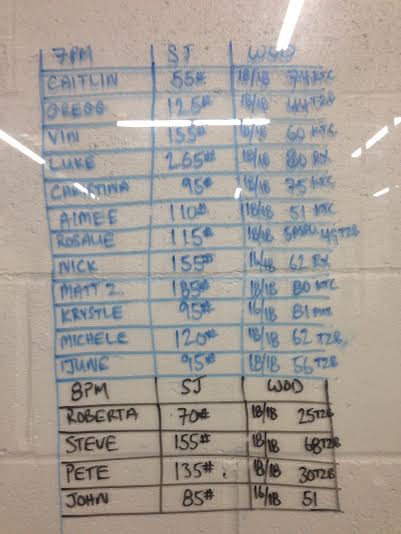 7PM SJ WOD
CAITLIN 55# 18/18 74 KTC
GREGG 125# 18/18 44 T2B
VIN 155# 18/18 60 KTC
LUKE 265# 18/18 80 RX
CHRISTINA 95# 18/18 75 KTC
AIMEE 110# 18/18 51 KTC
ROSALIE 115# 18/18 45 T2B
NICK 155# 62 RX
MATT Z. 185# 18/18 80 KTC
KRYSTLE 95# 16/18 81
MICHELE 120# 18/18 62 T2B
IJUNE 95# 18/18 56 T2B
8PM SJ WOD
ROBERTA 70# 18/18 25 T2B
STEVE 155# 18/18 68 T2B
PETE 135# 18/18 30 T2B
JOHN 85# 16/18 51